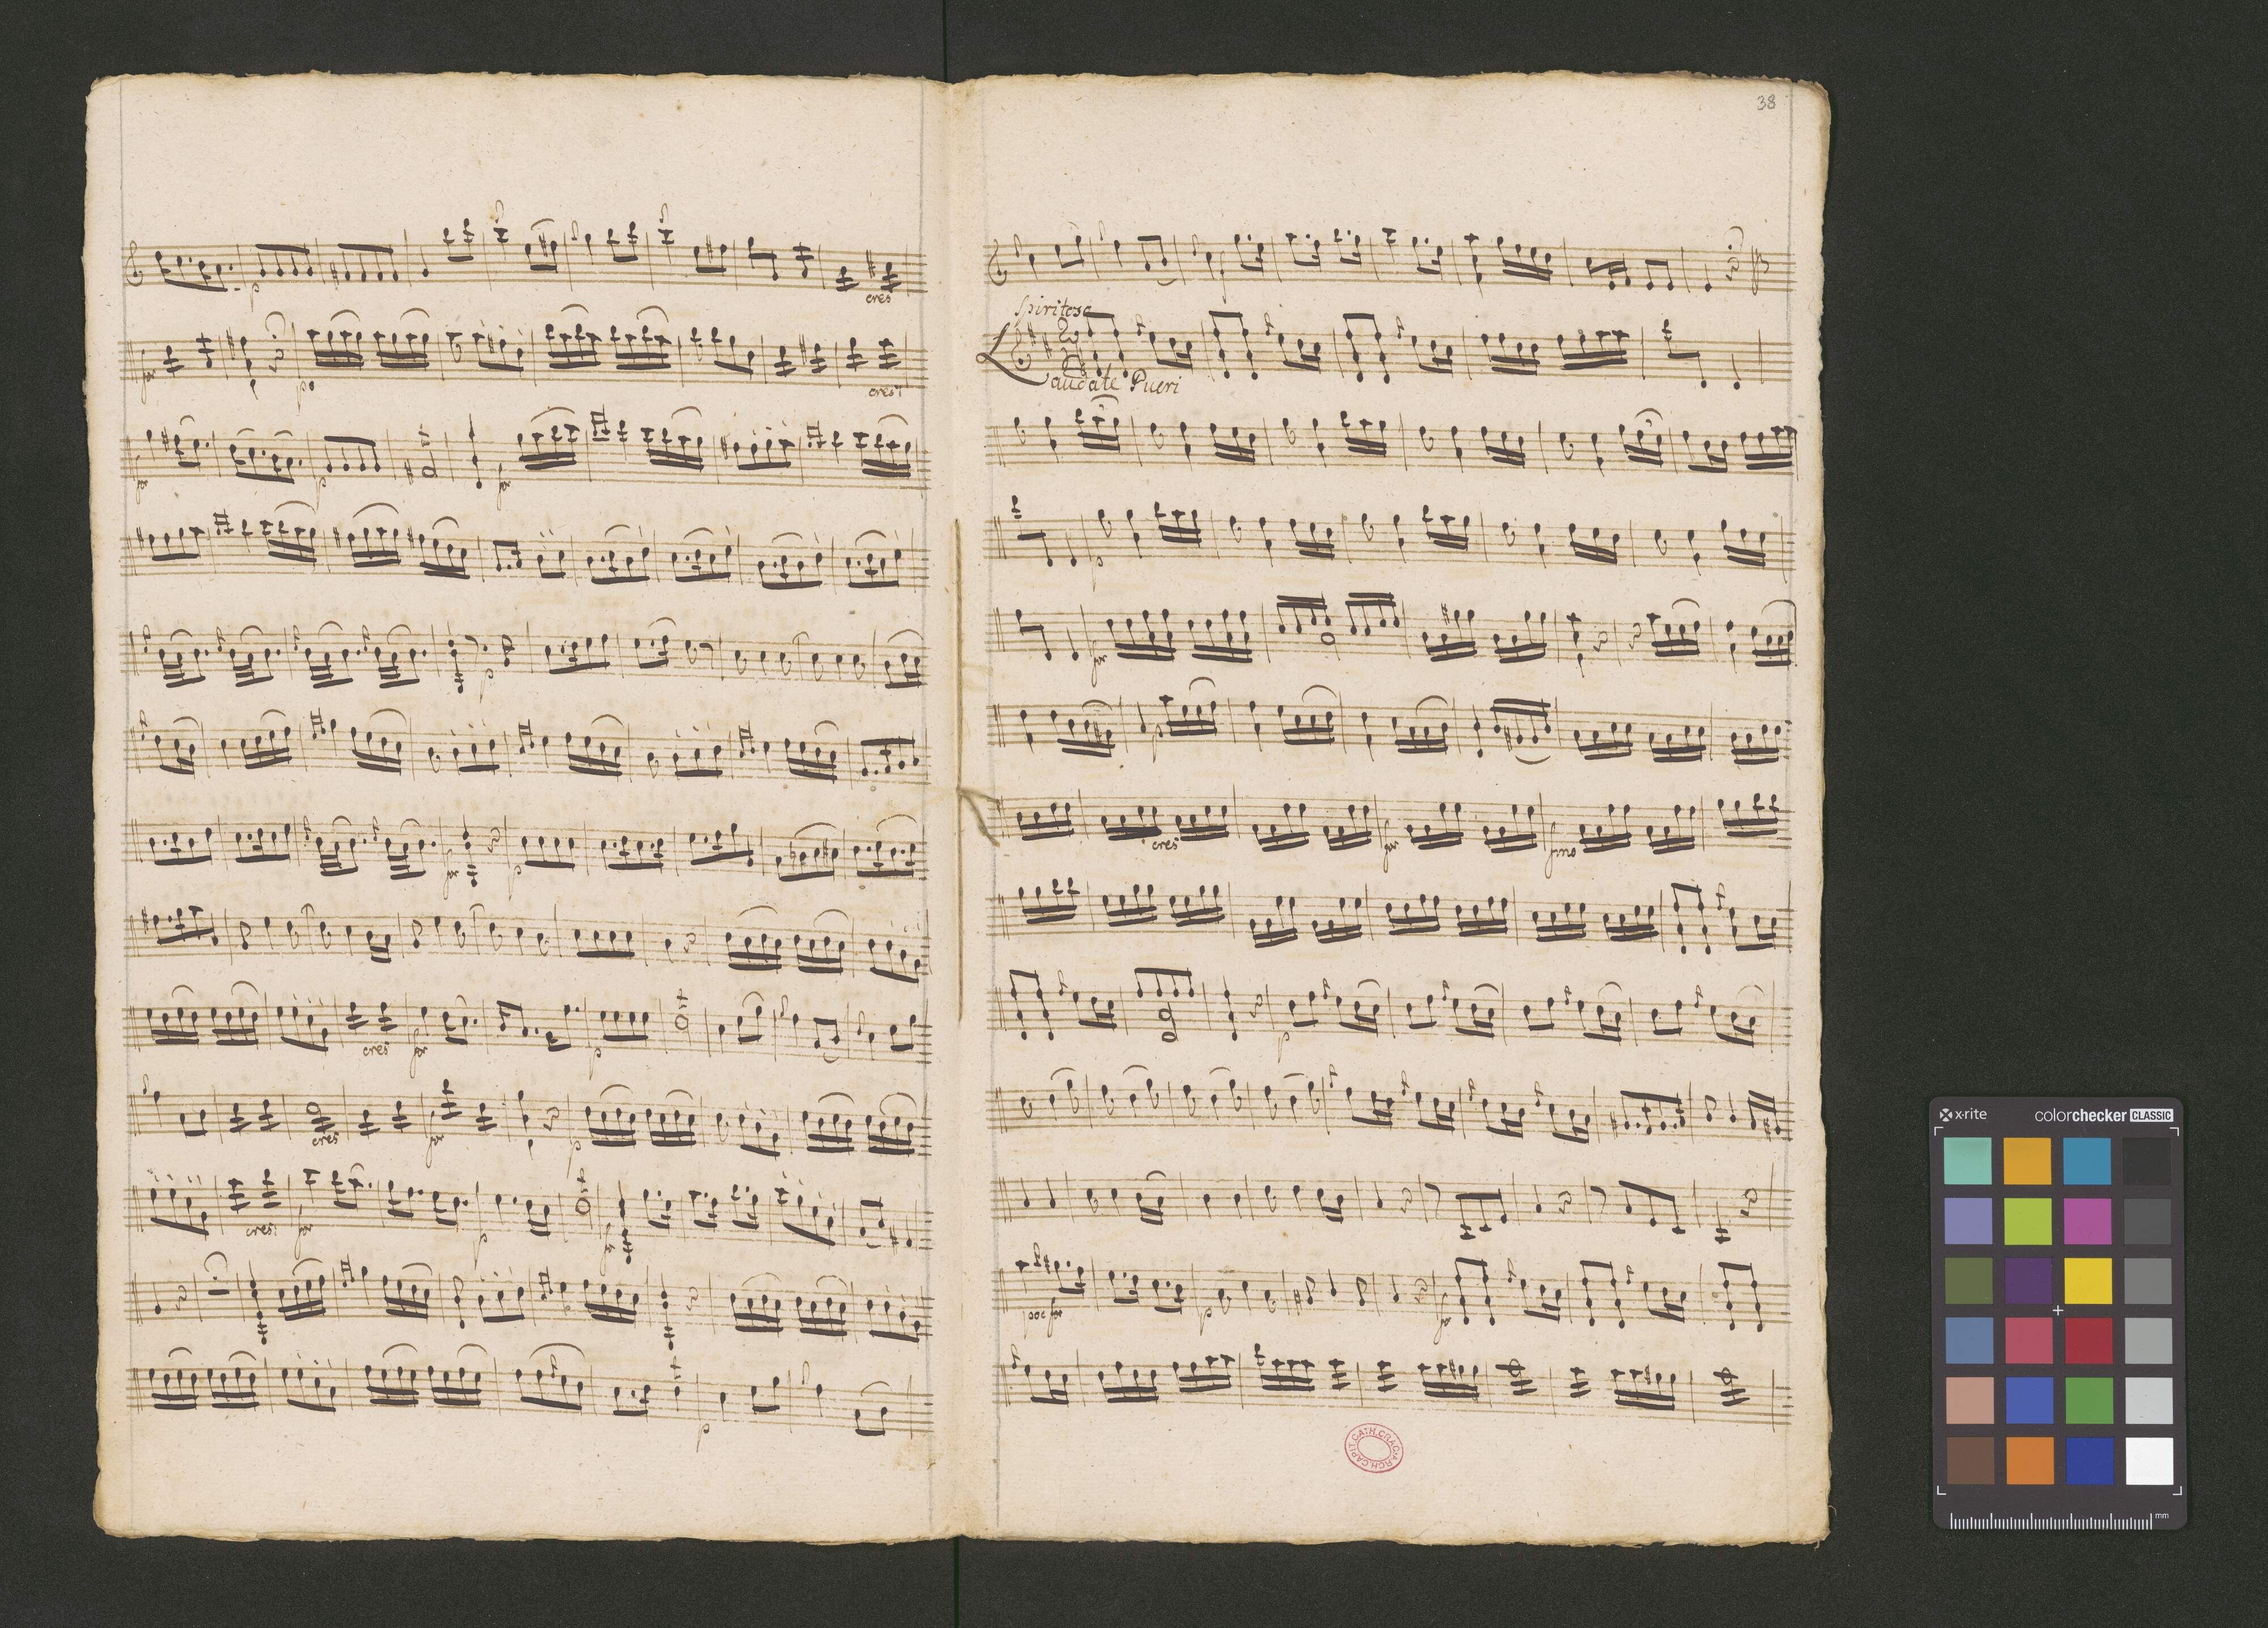 p
cres
for
po
cres:
for
p
for
p
for
p
cres
for
p
cres
for
p
cres:
for
p
for
p
38
Spiritoso
Laudate Pueri
p
for
p
cres
for
fmo
p
poc for
p
for
ARCH. CAPIT. CATH. CRAC.
x-rite
colorchecker CLASSIC
mm